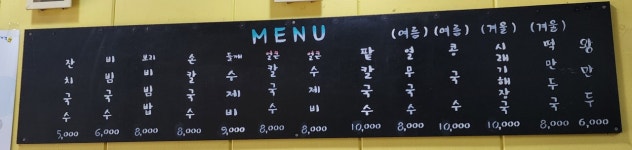 MENU
잔치국수 5,000
비빔국수 6,000
보리비빔밥 8,000
손칼국수 8,000
들깨수제비 9,000
얼큰칼국수 8,000
얼큰수제비 8,000
팥칼국수 10,000
(여름) 열무국수 8,000
(여름) 콩국수 10,000
(겨울) 시래기해장국 10,000
(겨울) 떡만두국 8,000
왕만두 6,000